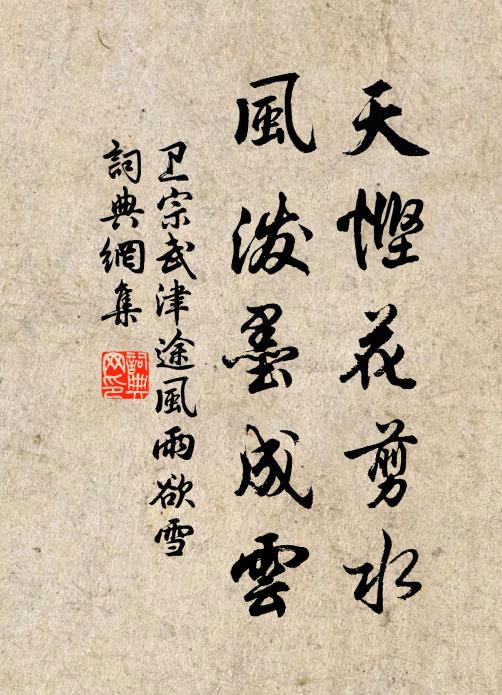 天慳花剪水
風潑墨成雲
卫宗武津途風雨欲雪
詞典網集
詞典
网印